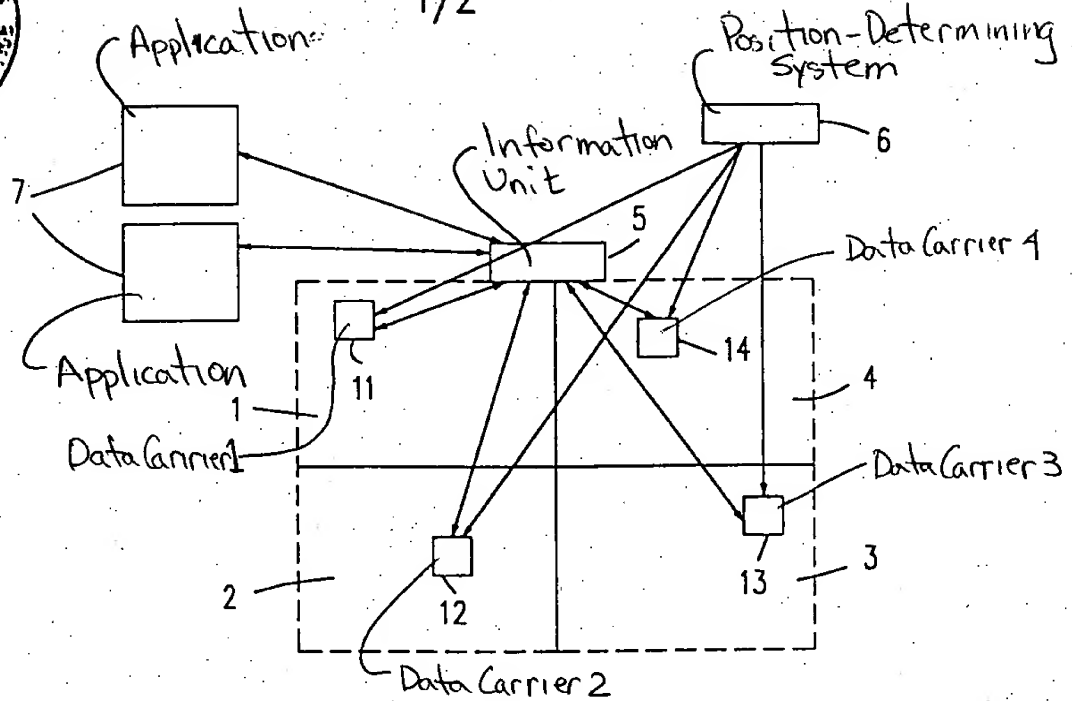 1/2
Application
Position-Determining
System
Information
Unit
6
7
5
Data Carrier 4
14
11
Application
4
1
Data Carrier1
Data Carrier 3
13
3
2
12
Data Carrier 2